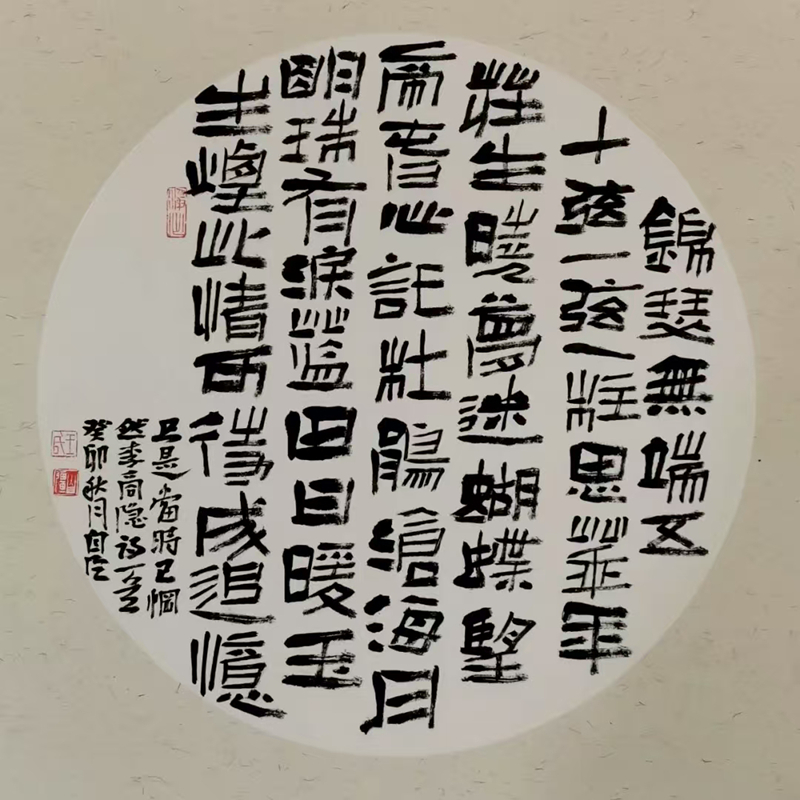 錦瑟無端五
十弦一弦一柱思華年
莊生曉夢迷蝴蝶望
帝春心託杜鵑滄海月
明珠有淚藍田日暖玉
生煙此情可待成追憶
只是當時已惘
然李商隱詩一首
癸卯秋月